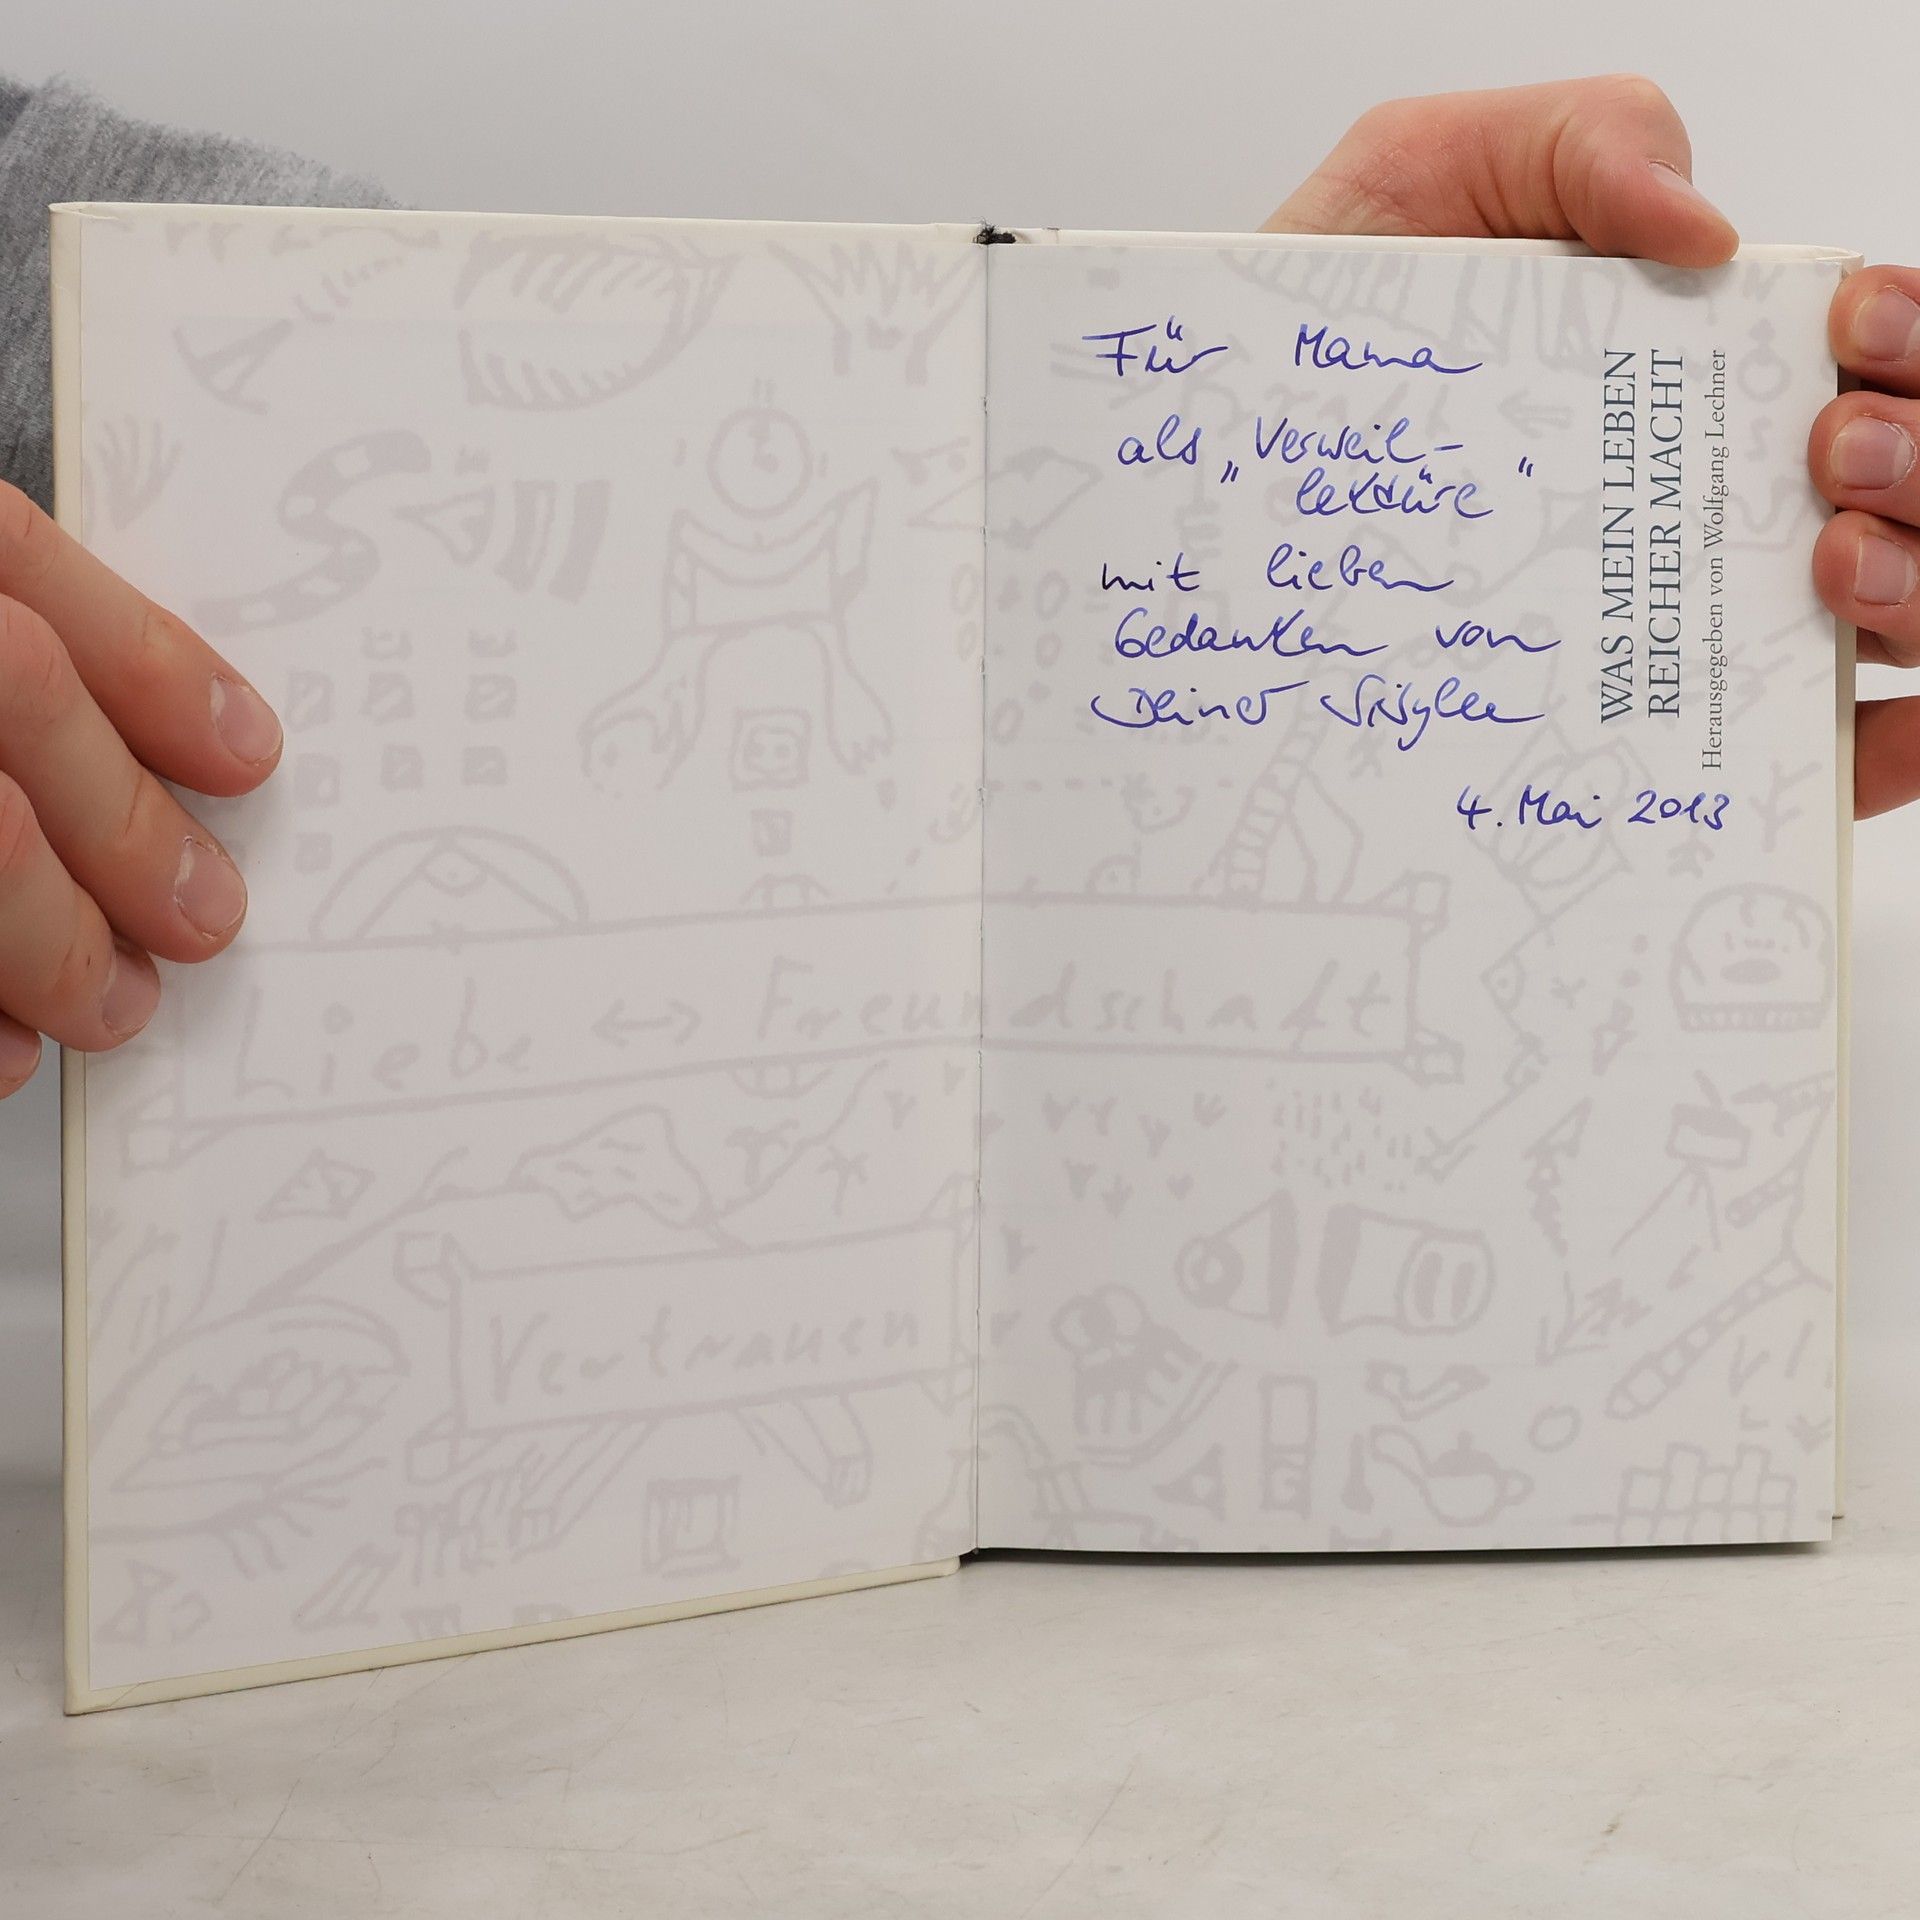 Für Mama
als „Verweil-
lektüre"
mit lieben
Gedanken von
Deiner Sibylle
4. Mai 2013
WAS MEIN LEBEN
REICHER MACHT
Herausgegeben von Wolfgang Lechner
Liebe ↔ Freundschaft
Vertrauen